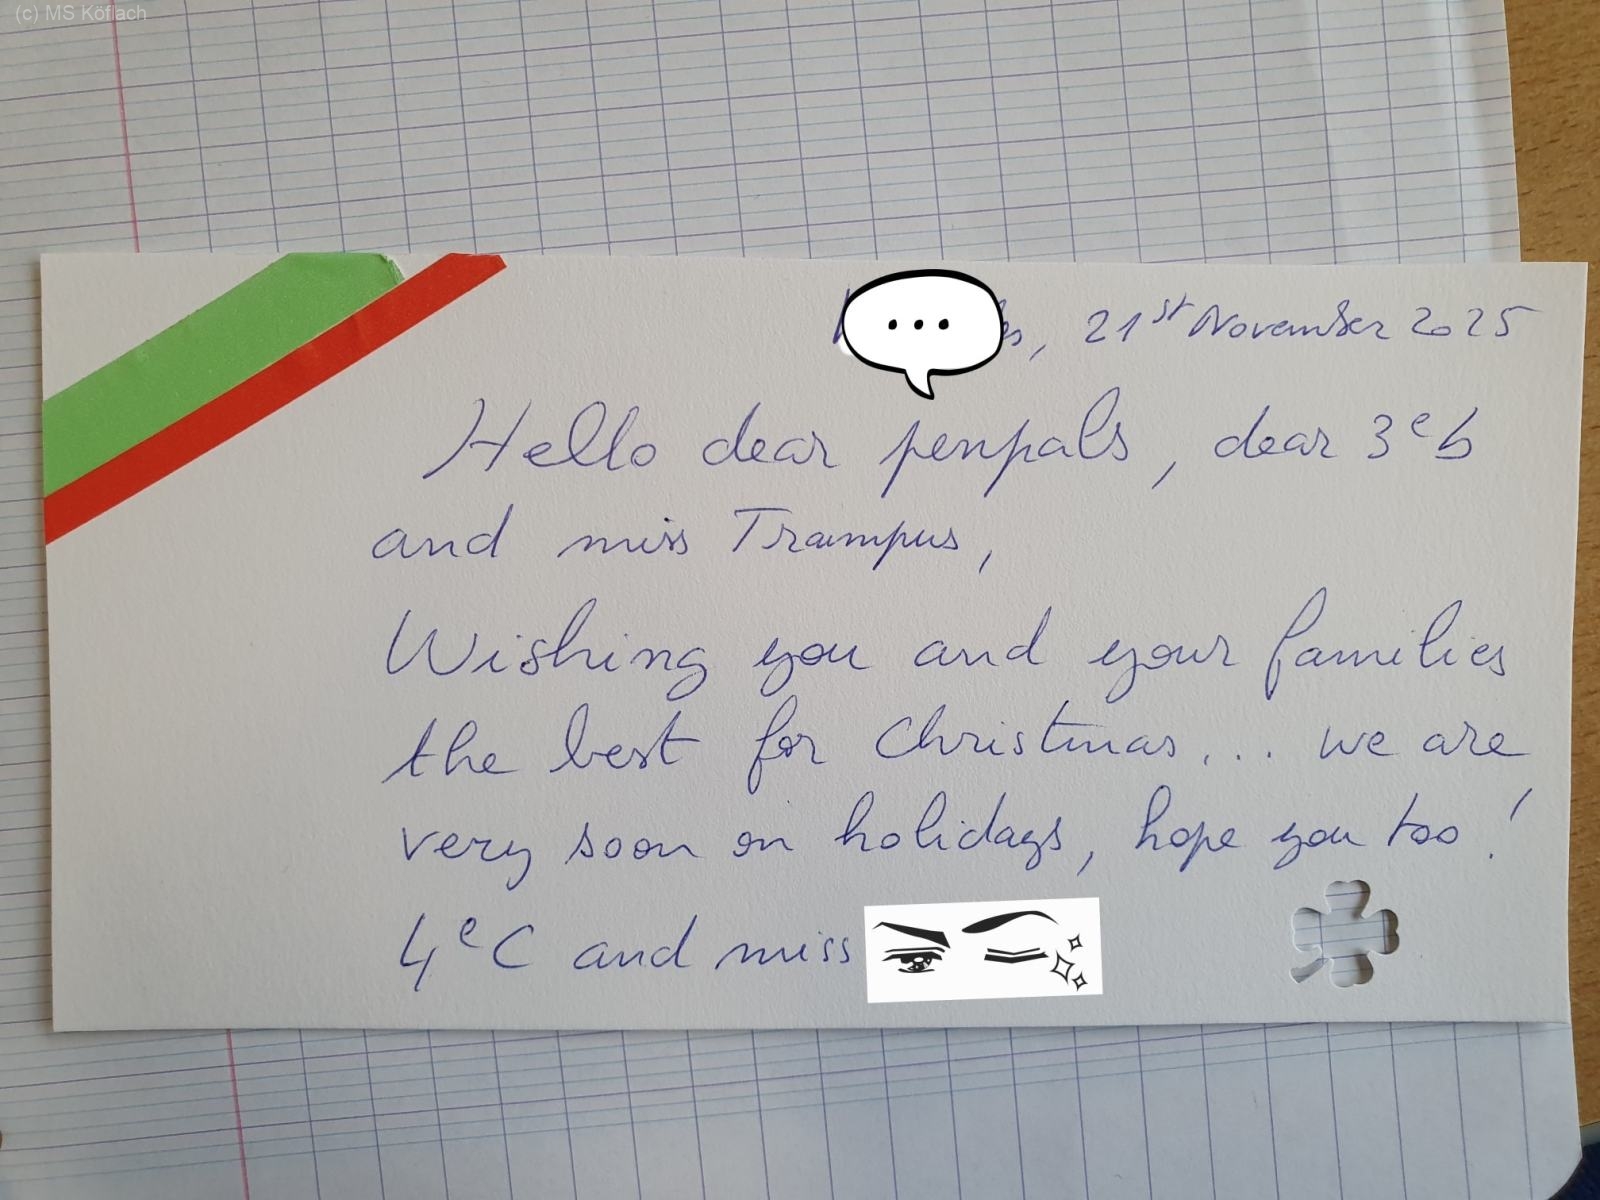 (c) MS Köflach
, 21st November 2025
Hello dear penpals, dear 3e b
and miss Trampus,
Wishing you and your families
the best for Christmas... we are
very soon on holidays, hope you too!
4e C and miss